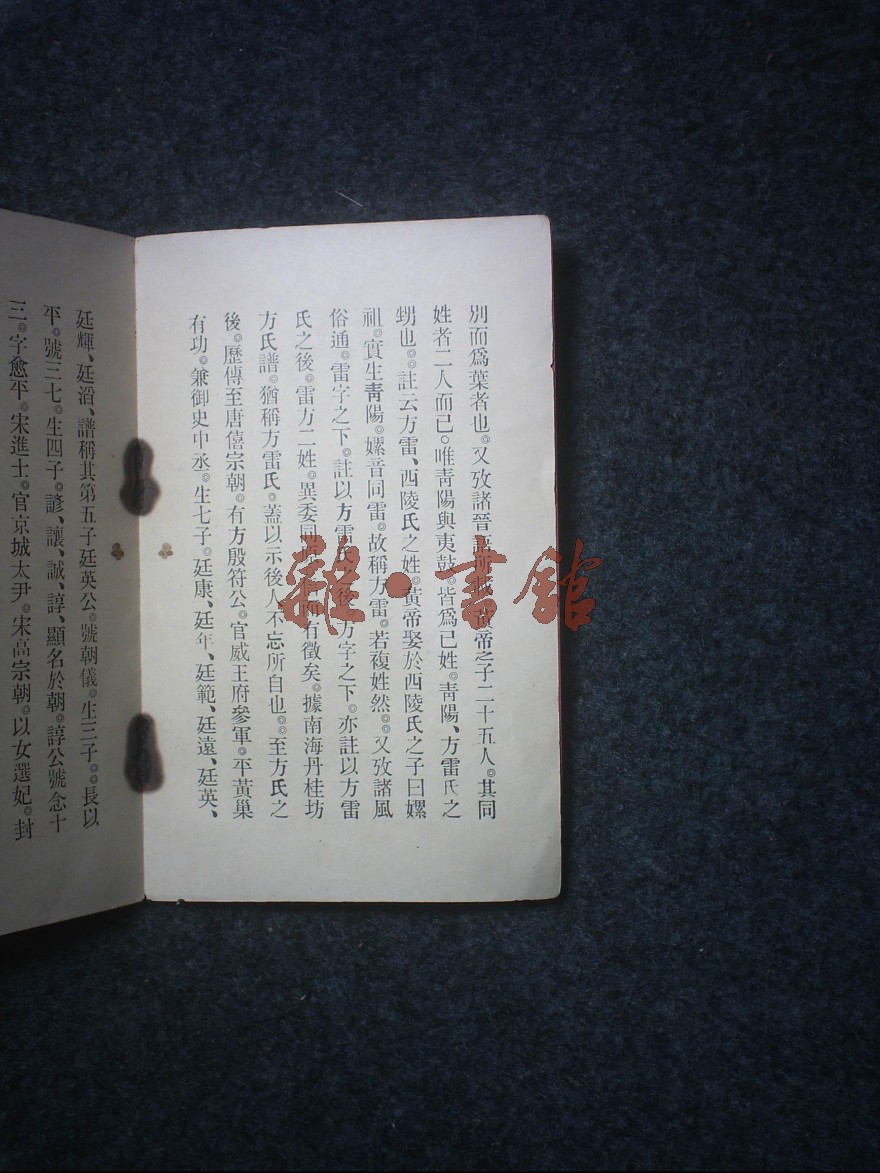 別而爲葉者也。又攷諸晉語所黃帝之子二十五人。其同
姓者二人而已。唯靑陽與夷鼓。皆爲己姓。靑陽、方雷氏之
甥也。註云方雷、西陵氏之姓。黃帝娶於西陵氏之子曰嫘
祖。實生靑陽。嫘音同雷。故稱方雷。若複姓然。又攷諸風
俗通。雷字之下。註以方雷後方字之下。亦註以方雷
氏之後。雷方二姓。異委同而有徵矣。據南海丹桂坊
方氏譜。猶稱方雷氏。蓋以示後人不忘所自也。至方氏之
後。歷傳至唐僖宗朝。有方殷符公。官威王府參軍。平黃巢
有功。兼御史中丞。生七子。廷康、廷年、廷範、廷遠、廷英、
廷輝、廷滔、譜稱其第五子廷英公。號朝儀。生三子。長以
平。號三七。生四子。諺、讓、誠、諄、顯名於朝。諄公號念十
三。字愈平。宋進士。官京城太尹。宋高宗朝。以女選妃。封
雜·書館